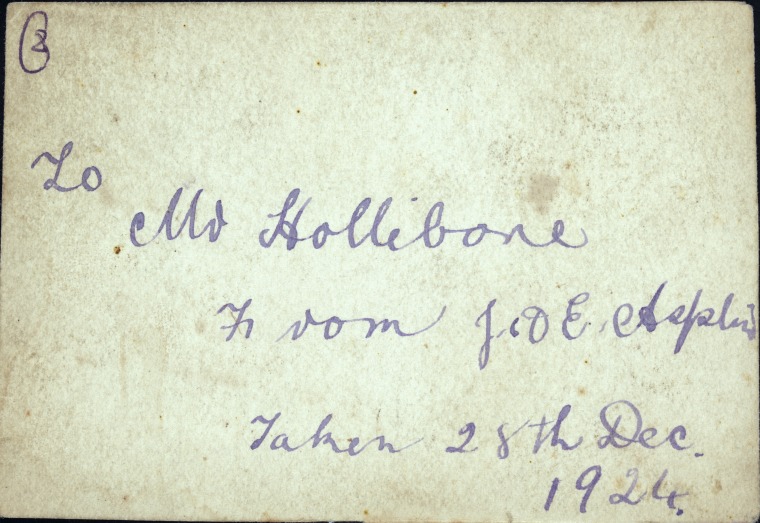 To
Mr Hollibone
From J. & E. Asplin
Taken 28th Dec.
1924.